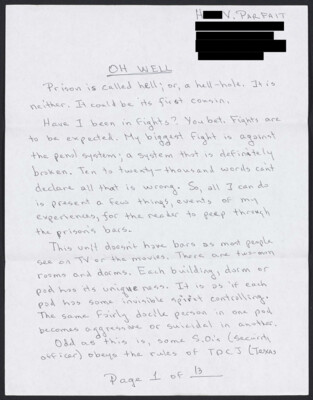 H V. PARFAIT
OH WELL
Prison is called hell; or, a hell-hole. It is
neither. It could be its first cousin.
Have I been in fights? You bet. Fights are
to be expected. My biggest fight is against
the penal system; a system that is definately
broken. Ten to twenty-thousand words cant
declare all that is wrong. So, all I can do
is present a few things, events or my
experiences, for the reader to peep through
the prison's bars.
This unit doesn't have bars as most people
see on TV or the movies. There are two-man
rooms and dorms. Each building, dorm or
pod has its uniqueness. It is as if each
pod has some invisible spirit controlling.
The same fairly docile person in one pod
becomes aggressive or suicidal in another.
Odd as this is, some S.O.'s (security
officer) obeys the rules of TDCJ (Texas
Page 1 of 13